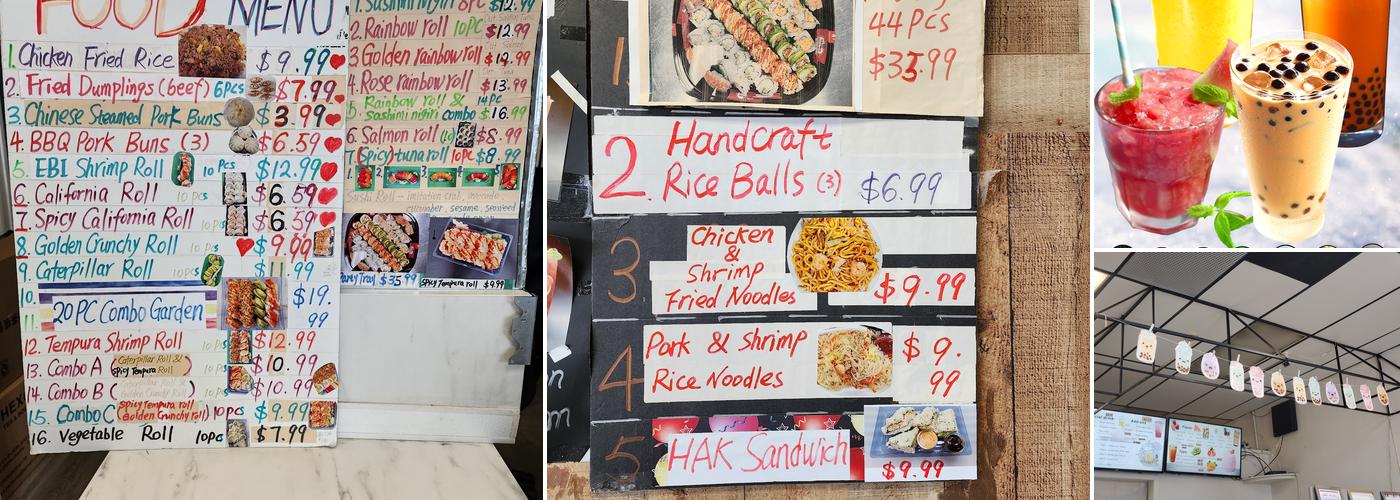 FOOD MENU
1. Chicken Fried Rice $9.99
2. Fried Dumplings (beef) 6pcs $7.99
3. Chinese Steamed Pork Buns $3.99
4. BBQ Pork Buns (3) $6.59
5. EBI Shrimp Roll 10pcs $12.99
6. California Roll 10pcs $6.59
7. Spicy California Roll 10pcs $6.59
8. Golden Crunchy Roll 10pcs $9.99
9. Caterpillar Roll 10pcs $11.99
10.
11. 20PC Combo Garden $19.99
12. Tempura Shrimp Roll 10pcs $12.99
13. Combo A Caterpillar Roll & Spicy Tempura Roll $10.99
14. Combo B $10.99
15. Combo C (Spicy Tempura roll Golden Crunchy roll) 10pcs $9.99
16. Vegetable Roll 10pc $7.99
1. Sashimi nigiri 8PC $12.99
2. Rainbow roll 10PC $12.99
3. Golden rainbow roll
4. Rose rainbow roll $13.99
5. Rainbow roll & 14PC
Sashimi nigiri combo $16.99
6. Salmon roll $8.99
7. (Spicy) tuna roll 10PC $8.99
Sushi Roll - imitation crab, avocado,
cucumber, sesame, seaweed
Party Tray $35.99
Spicy Tempura roll $9.99
1.
44 Pcs
$33.99
2. Handcraft
Rice Balls (3) $6.99
3 Chicken
&
Shrimp
Fried Noodles $9.99
4 Pork & Shrimp
Rice Noodles $9.99
5 HAK Sandwich
$9.99